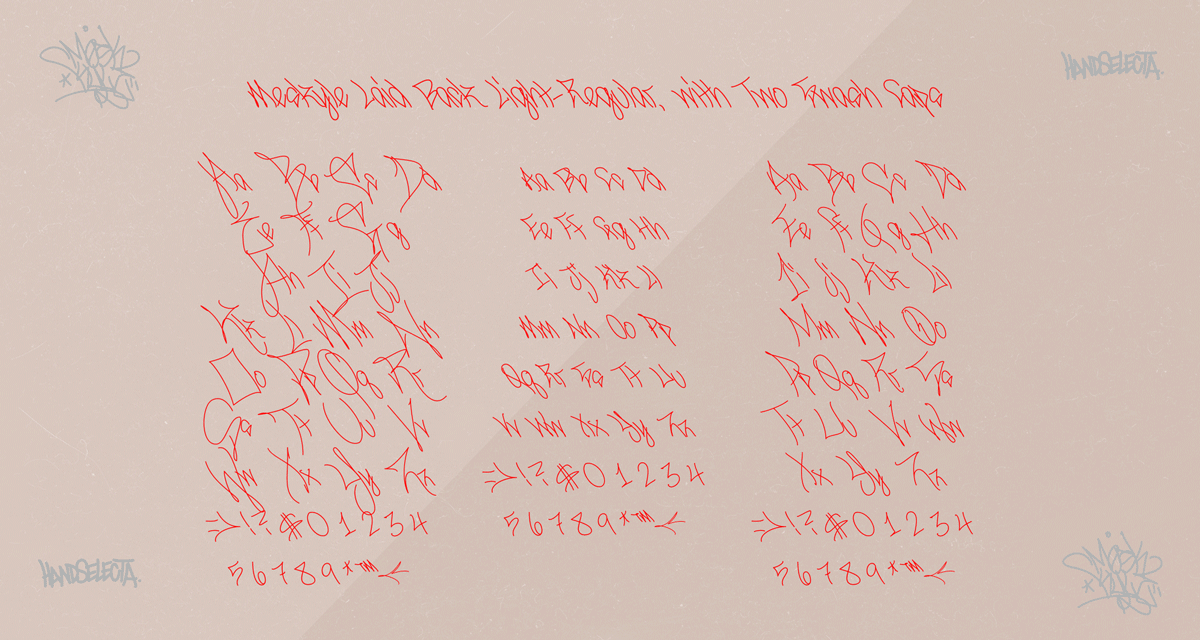 HANDSELECTA.
Meskyle Laid Back Light-Regular, with Two Swash Caps
Aa Bb Cc Dd
Ee Ff Gg
Hh Ii Jj
Kk Ll Mm Nn
Oo Pp Qq Rr
Ss Tt Uu Vv
Ww Xx Yy Zz
=>!?$01234
56789*™<
Aa Bb Cc Dd
Ee Ff Gg Hh
Ii Jj Kk Ll
Mm Nn Oo Pp
Qq Rr Ss Tt Uu
Vv Ww Xx Yy Zz
=>!?$01234
56789*™<
Aa Bb Cc Dd
Ee Ff Gg Hh
Ii Jj Kk Ll
Mm Nn Oo
Pp Qq Rr Ss
Tt Uu Vv Ww
Xx Yy Zz
=>!?$01234
56789*™<
HANDSELECTA.